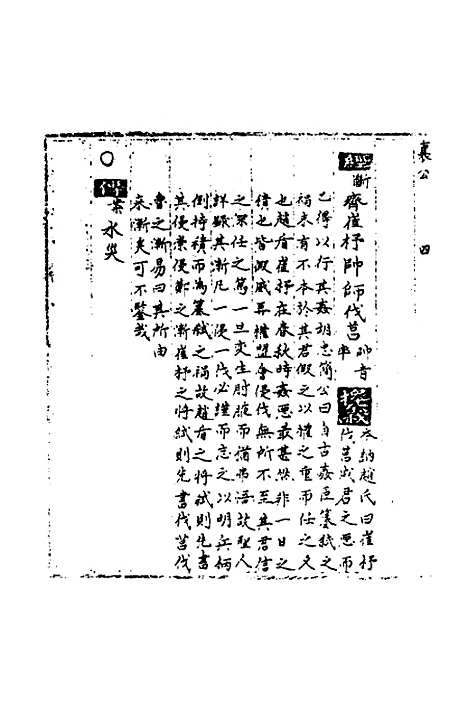 襄公 四
經 斷 齊崔杼帥師伐莒 帥音率
木納趙氏曰崔杼
伐莒成君之惡而
已得以行其姦胡忠簡公曰自古姦臣篡弒之
禍未有不本於其君假之以權之重而任之久
也趙盾崔杼在春秋時姦惡最甚然非一日之
積也皆取威再擅盟會侵伐無所不至其君信
之深任之篤一旦变生肘腋而猶弗悟故聖人
詳錄其漸凡一侵一伐必謹而志之以明兵柄
倒持積而為篡弒之禍故趙盾之將弒則先書
其侵崇侵鄭之漸崔杼之將弒則先書伐莒伐
魯之漸易曰其所由
來漸矣可不鑒哉
○
傳 案 水災